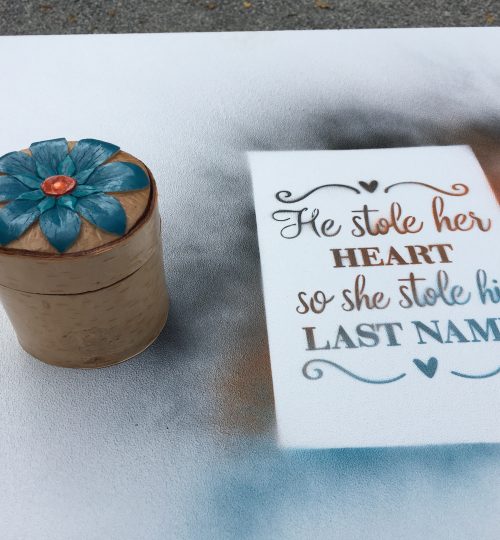 He stole her
HEART
so she stole hi
LAST NAM